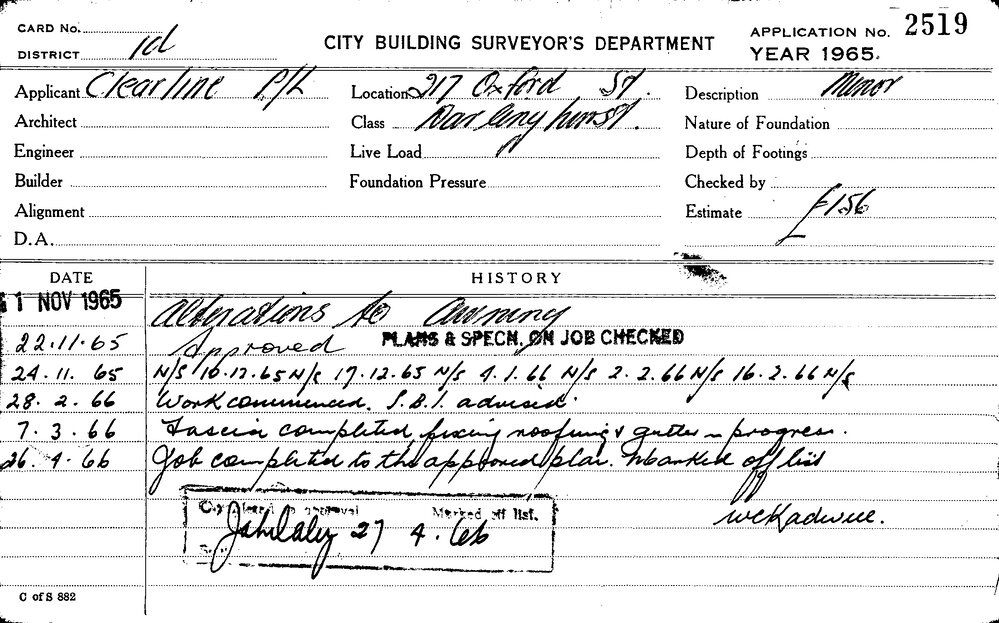 CARD No.
DISTRICT 1d
CITY BUILDING SURVEYOR'S DEPARTMENT
APPLICATION No. 2519
YEAR 1965.
Applicant Clearline P/L
Location 217 Oxford St.
Description Minor
Architect
Class Darlinghurst.
Nature of Foundation
Engineer
Live Load
Depth of Footings
Builder
Foundation Pressure
Checked by
Alignment
Estimate £156
D.A.
DATE
HISTORY
1 NOV 1965 Alterations to Awning
22.11.65 Approved PLANS & SPECN. ON JOB CHECKED
24.11.65 N/S 10.12.65 N/S 17.12.65 N/S 4.1.66 N/S 2.2.66 N/S 16.2.66 N/S
28.2.66 Work commenced. S.B.I. advised.
7.3.66 Fascia completed, fixing roofing & gutter in progress.
26.4.66 Job completed to the approved plan. Marked off list
Completed to approval Marked off list.
27 4.66
C of S 882